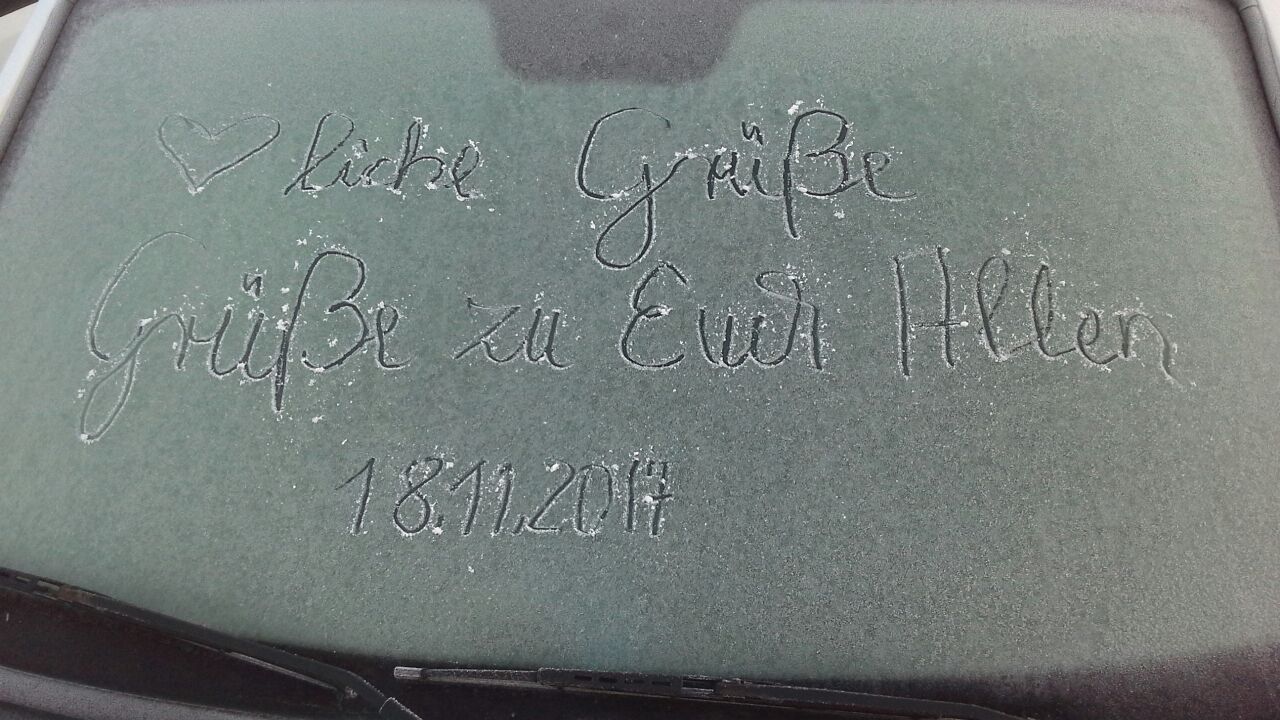 ♡ liche Grüße
Grüße zu Euch Allen
18.11.2017